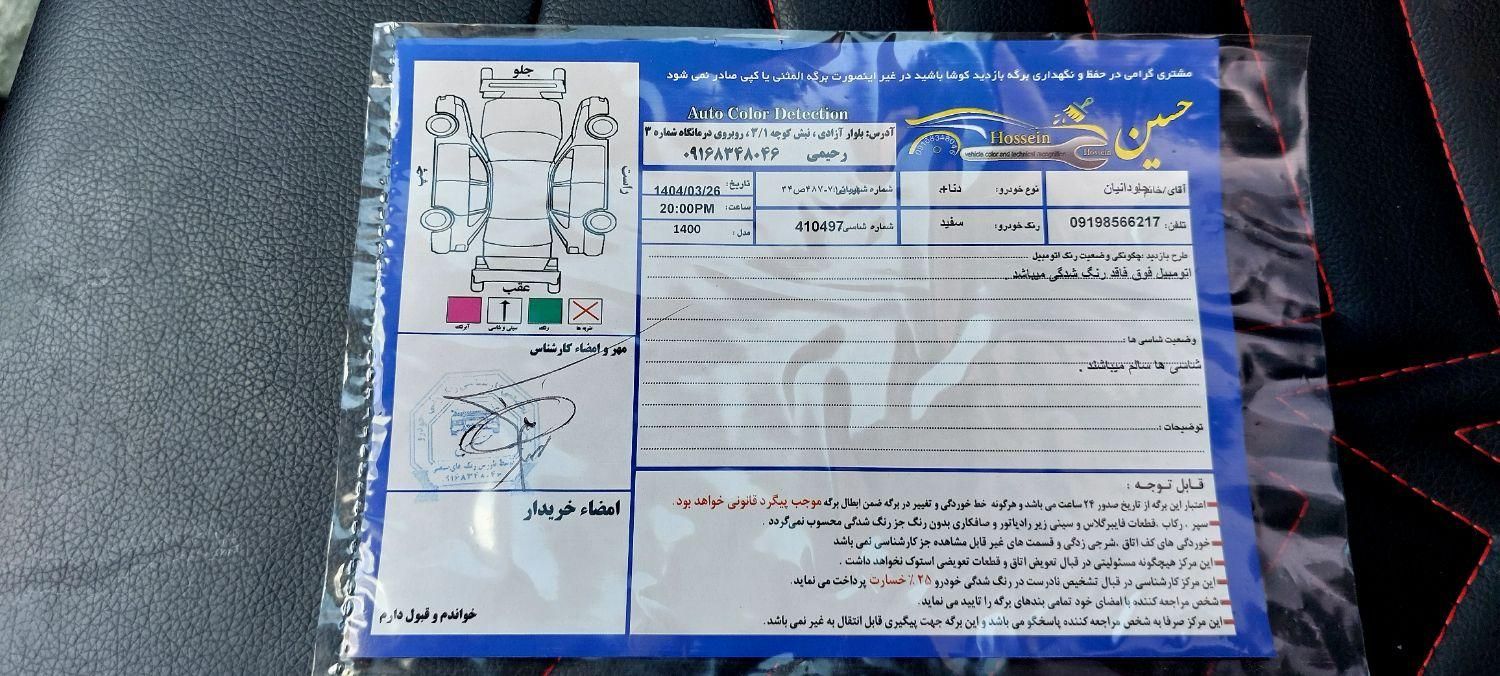 مشتری گرامی در حفظ و نگهداری برگه بازدید کوشا باشید در غیر اینصورت برگه المثنی یا کپی صادر نمی شود
حسین
Hossein
vehicle color and technical recognition
Hossein
Auto Color Detection
آدرس: بلوار آزادی ، نبش کوچه ۳/۱ ، روبروی درمانگاه شماره ۳
رحیمی ۰۹۱۶۸۳۴۸۰۴۶
آقای/خانم: جاودانیان
نوع خودرو: دنا+
شماره شهربانی:
تاریخ: 1404/03/26
ساعت: 20:00PM
تلفن: 09198566217
رنگ خودرو: سفید
شماره شاسی: 410497
مدل: 1400
طرح بازدید :چگونگی وضعیت رنگ اتومبیل
اتومبیل فوق فاقد رنگ شدگی میباشد .
وضعیت شاسی ها :
شاسی ها سالم میباشند .
توضیحات :
قابل توجه :
اعتبار این برگه از تاریخ صدور ۲۴ ساعت می باشد و هرگونه خط خوردگی و تغییر در برگه ضمن ابطال برگه موجب پیگرد قانونی خواهد بود.
سپر ، رکاب ،قطعات فایبرگلاس و سینی زیر رادیاتور و صافکاری بدون رنگ جز رنگ شدگی محسوب نمی‌گردد .
خوردگی های کف اتاق ،شرجی زدگی و قسمت های غیر قابل مشاهده جز کارشناسی نمی باشد
این مرکز هیچگونه مسئولیتی در قبال تعویض اتاق و قطعات تعویضی استوک نخواهد داشت .
این مرکز کارشناسی در قبال تشخیص نادرست در رنگ شدگی خودرو ۲۵٪ خسارت پرداخت می نماید.
شخص مراجعه کننده با امضای خود تمامی بندهای برگه را تایید می نماید.
این مرکز صرفا به شخص مراجعه کننده پاسخگو می باشد و این برگه جهت پیگیری قابل انتقال به غیر نمی باشد.
جلو
راست
چپ
عقب
ضربه ها
رنگ
سینی و شاسی
آبرنگ
مهر و امضاء کارشناس
۰۹۱۶۸۳۴۸۰۴۶
امضاء خریدار
خواندم و قبول دارم